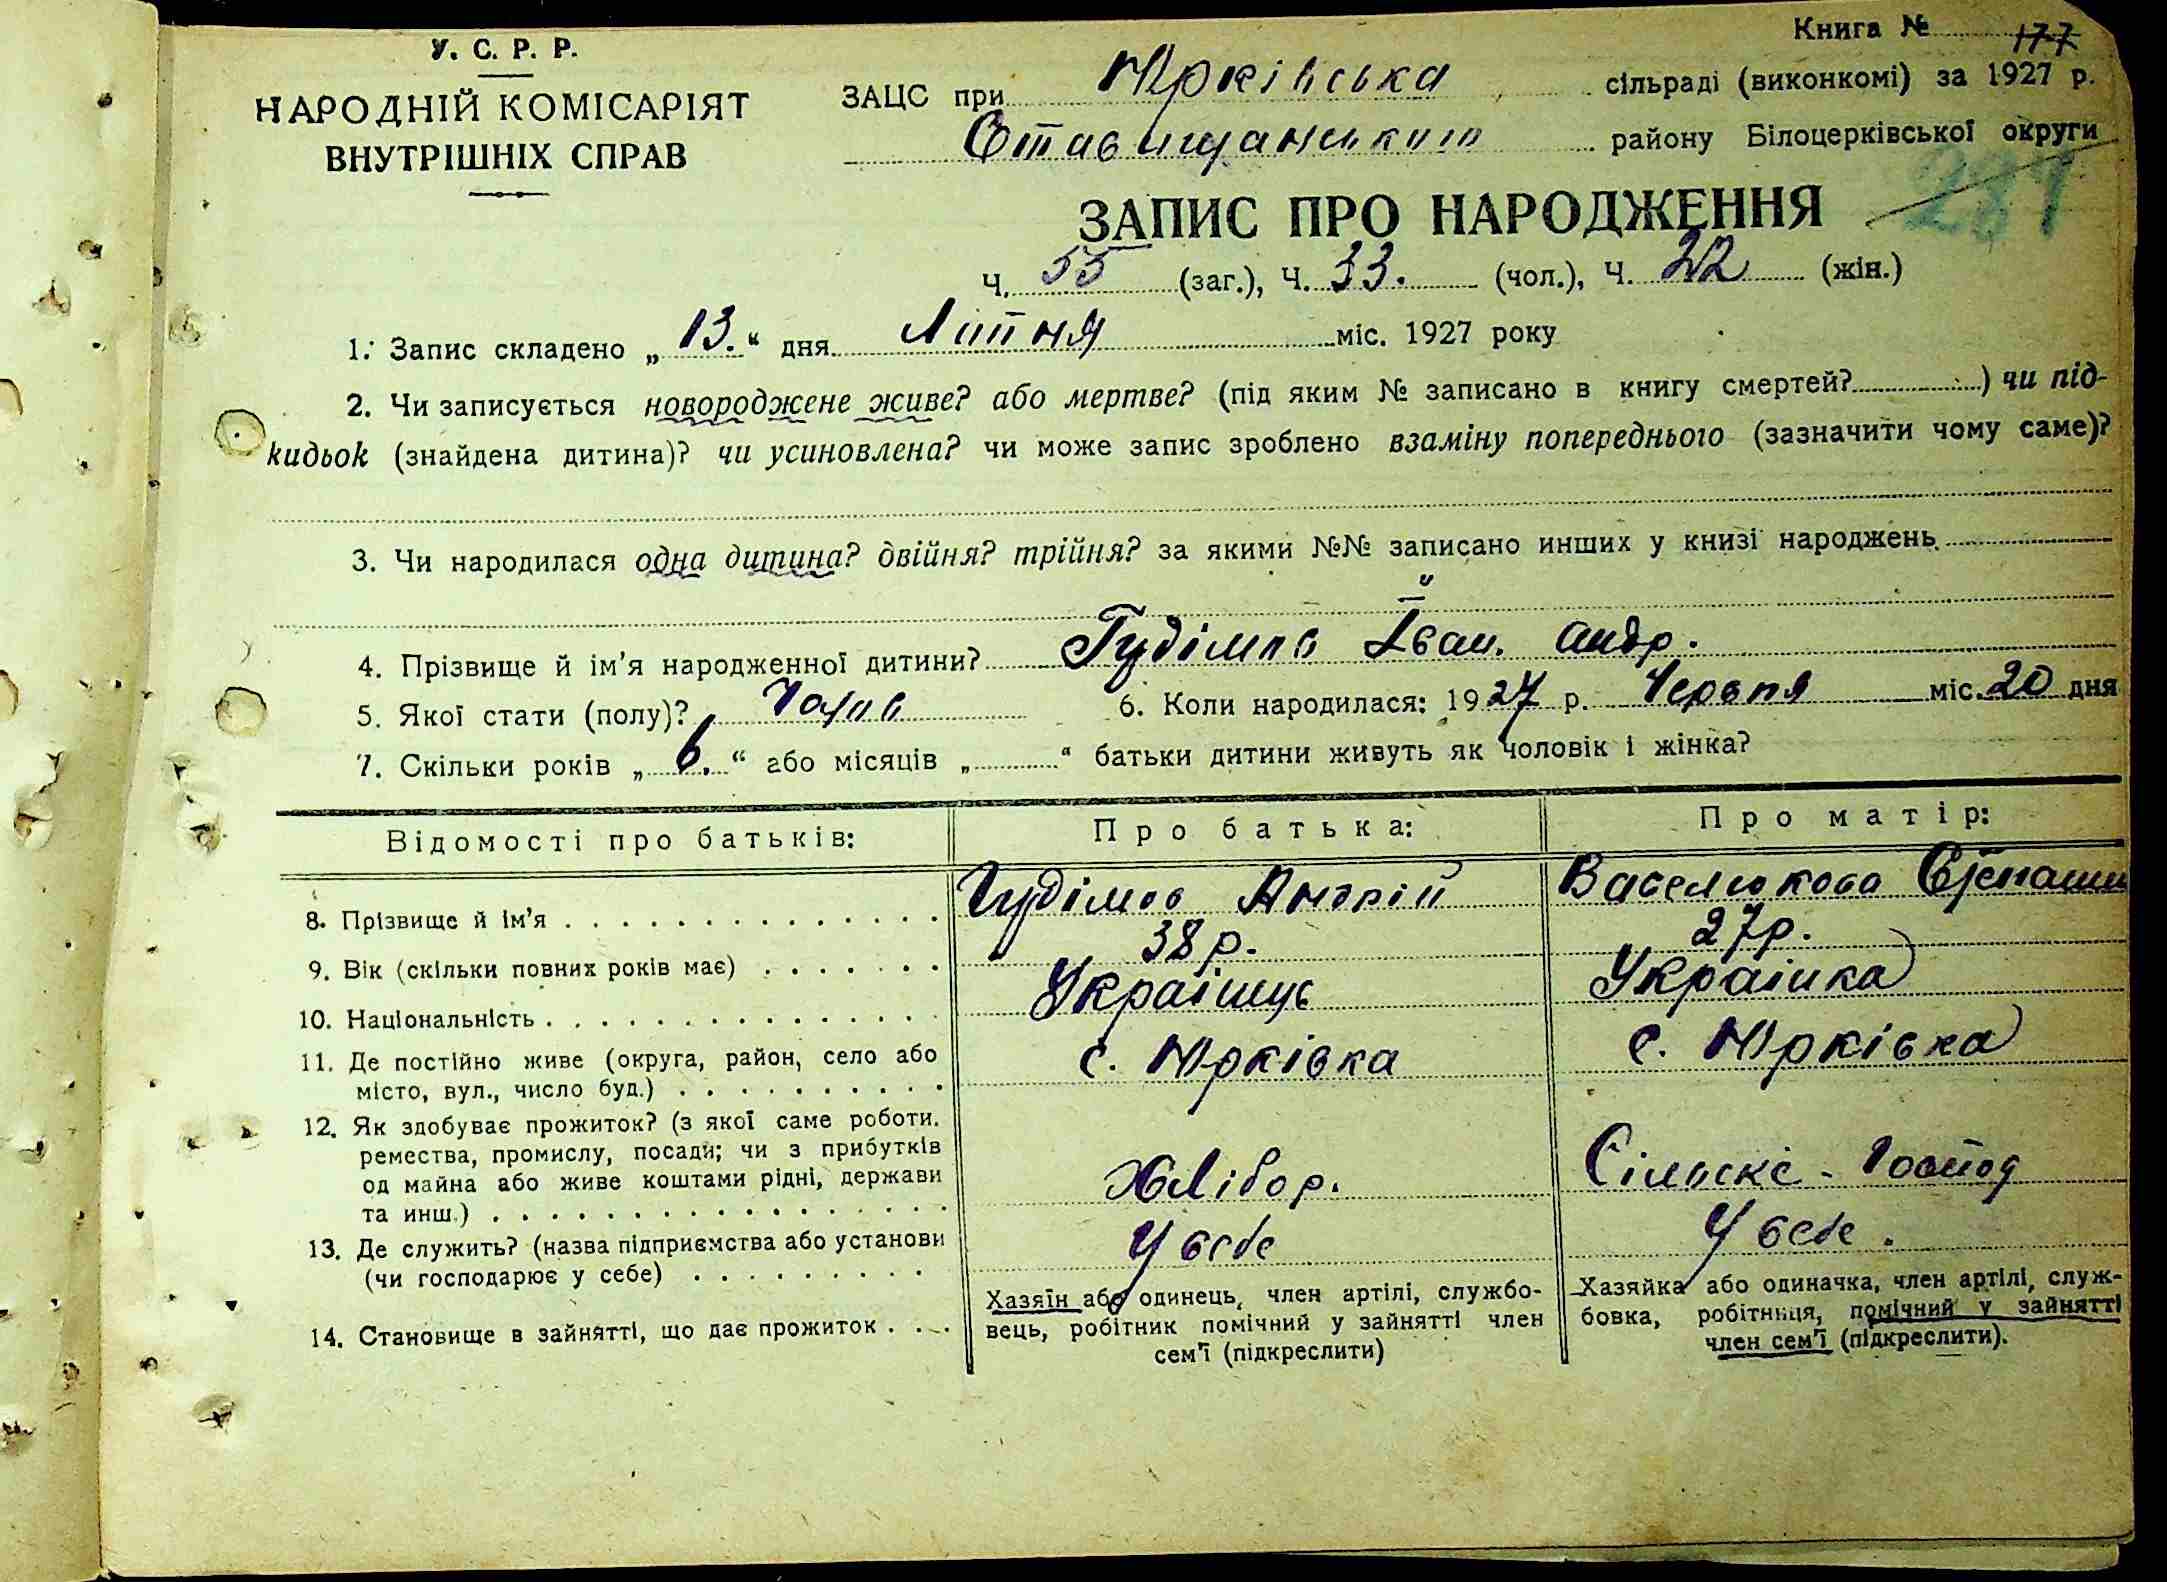 Книга № 177
У. С. Р. Р.
НАРОДНІЙ КОМІСАРІЯТ
ВНУТРІШНІХ СПРАВ
ЗАЦС при Юрківська сільраді (виконкомі) за 1927 р.
Ставищанського району Білоцерківської округи
281
ЗАПИС ПРО НАРОДЖЕННЯ
Ч. 55 (заг.), Ч. 33. (чол.), Ч. 22 (жін.)
1. Запис складено „13.“ дня Липня міс. 1927 року
2. Чи записується новороджене живе? або мертве? (під яким № записано в книгу смертей? ) чи під-
кидьок (знайдена дитина)? чи усиновлена? чи може запис зроблено взаміну попереднього (зазначити чому саме)?
3. Чи народилася одна дитина? двійня? трійня? за якими №№ записано инших у книзі народжень
4. Прізвище й ім'я народженної дитини? Гудімов Іван. Андр.
5. Якої стати (полу)? Чолов 6. Коли народилася: 1927 р. Червня міс. 20 дня
7. Скільки років „6.“ або місяців „ “ батьки дитини живуть як чоловік і жінка?
Відомості про батьків: Про батька: Про матір:
8. Прізвище й ім'я Гудімов Андрій Васелюкова
9. Вік (скільки повних років має) 38 р. 27 р.
10. Національність Українць Українка
11. Де постійно живе (округа, район, село або
місто, вул., число буд.) с. Юрківка с. Юрківка
12. Як здобуває прожиток? (з якої саме роботи,
ремества, промислу, посади; чи з прибутків
од майна або живе коштами рідні, держави
та инш.) Хлібор. Сільске-Господ
13. Де служить? (назва підприємства або установи
(чи господарює у себе) У себе У себе.
14. Становище в зайнятті, що дає прожиток
Хазяїн або одинець, член артілі, службо-
вець, робітник помічний у зайнятті член
сем'ї (підкреслити)
Хазяйка або одиначка, член артілі, служ-
бовка, робітниця, помічний у зайнятті
член сем'ї (підкреслити).